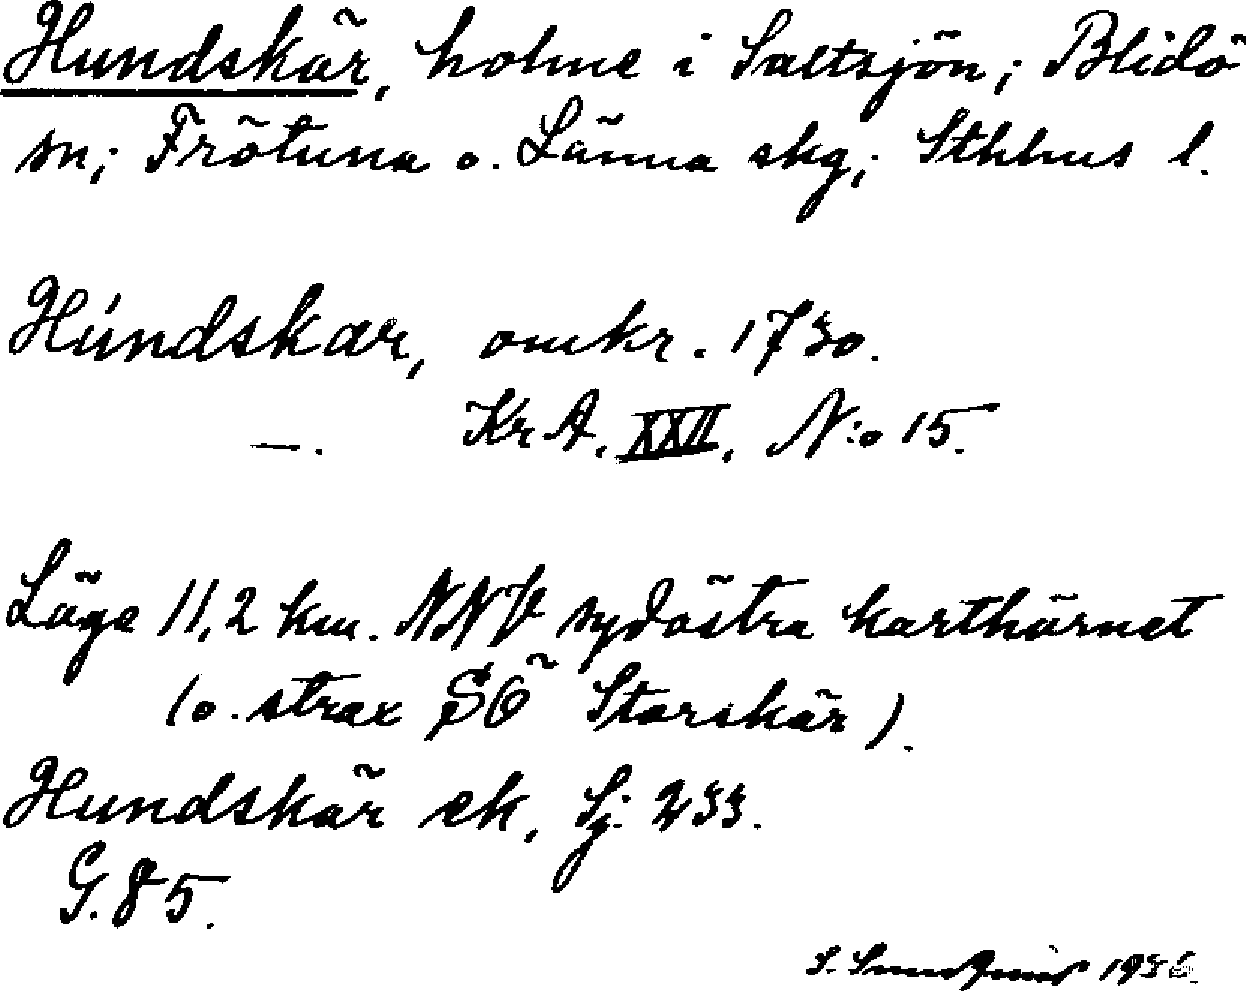 Hundskär, holme i Saltsjön; Blidö
sn; Frötuna o. Länna skg; Sthlms l.
Húndskær, omkr. 1730.
—. Kr A. XXII. N:o 15.
Läge 11,2 km. NNV sydöstra karthörnet
(o. strax SÖ Storskär).
Hundskär ek, Sj. 233.
G. 85.
S. 1936